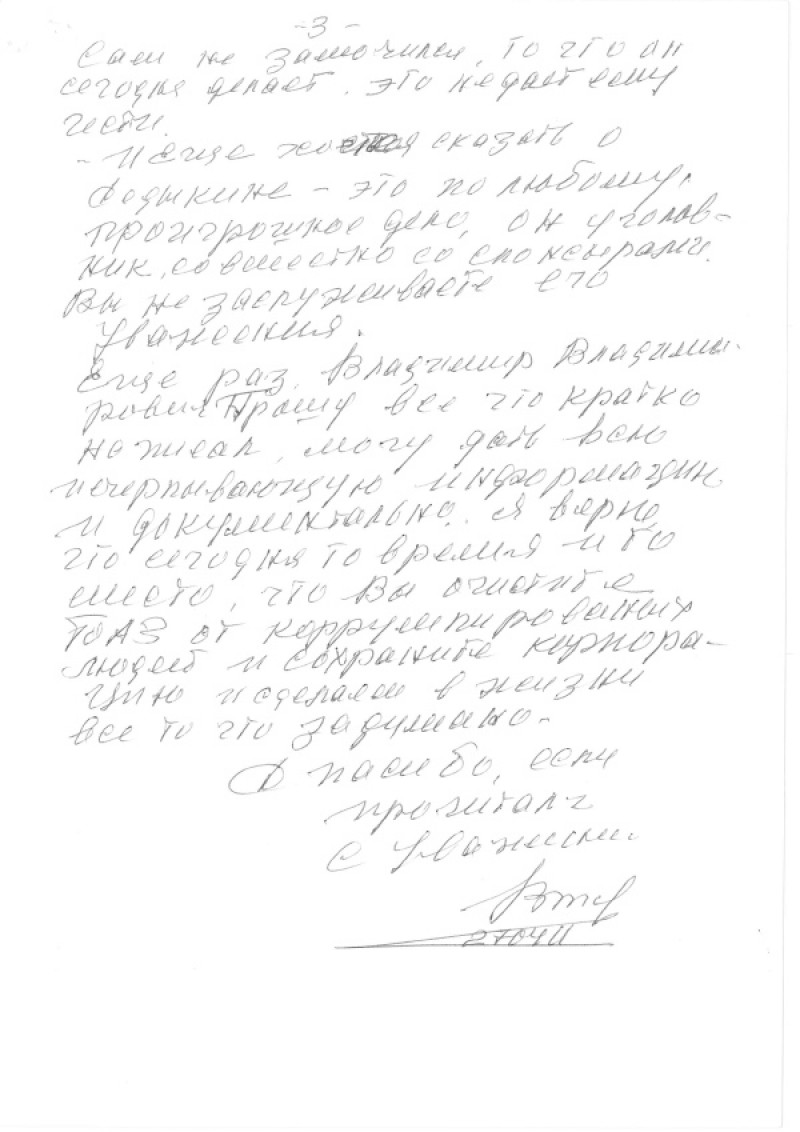 -3-
Сам не замочился, то что он
сегодня делает. это недает ему
чести.
- И Еще хотел сказать о
Федыкине - это по любому,
проигрошное дело, он уголов-
ник, совместно со спонсырами.
Вы не заслуживаете его
Уважения.
Еще раз, Владимир Владими-
рович Прошу все что кратко
написал, могу дать всю
исчерпывающую информацию
и документально. Я верю,
что сегодня то время и то
место, что Вы очистите
ТоАЗ от коррумпированных
людей и сохраните корпора-
цию и сделаем в жизни
все то что задумано.
Спасибо, если
прочитали
С Уважением.
270411